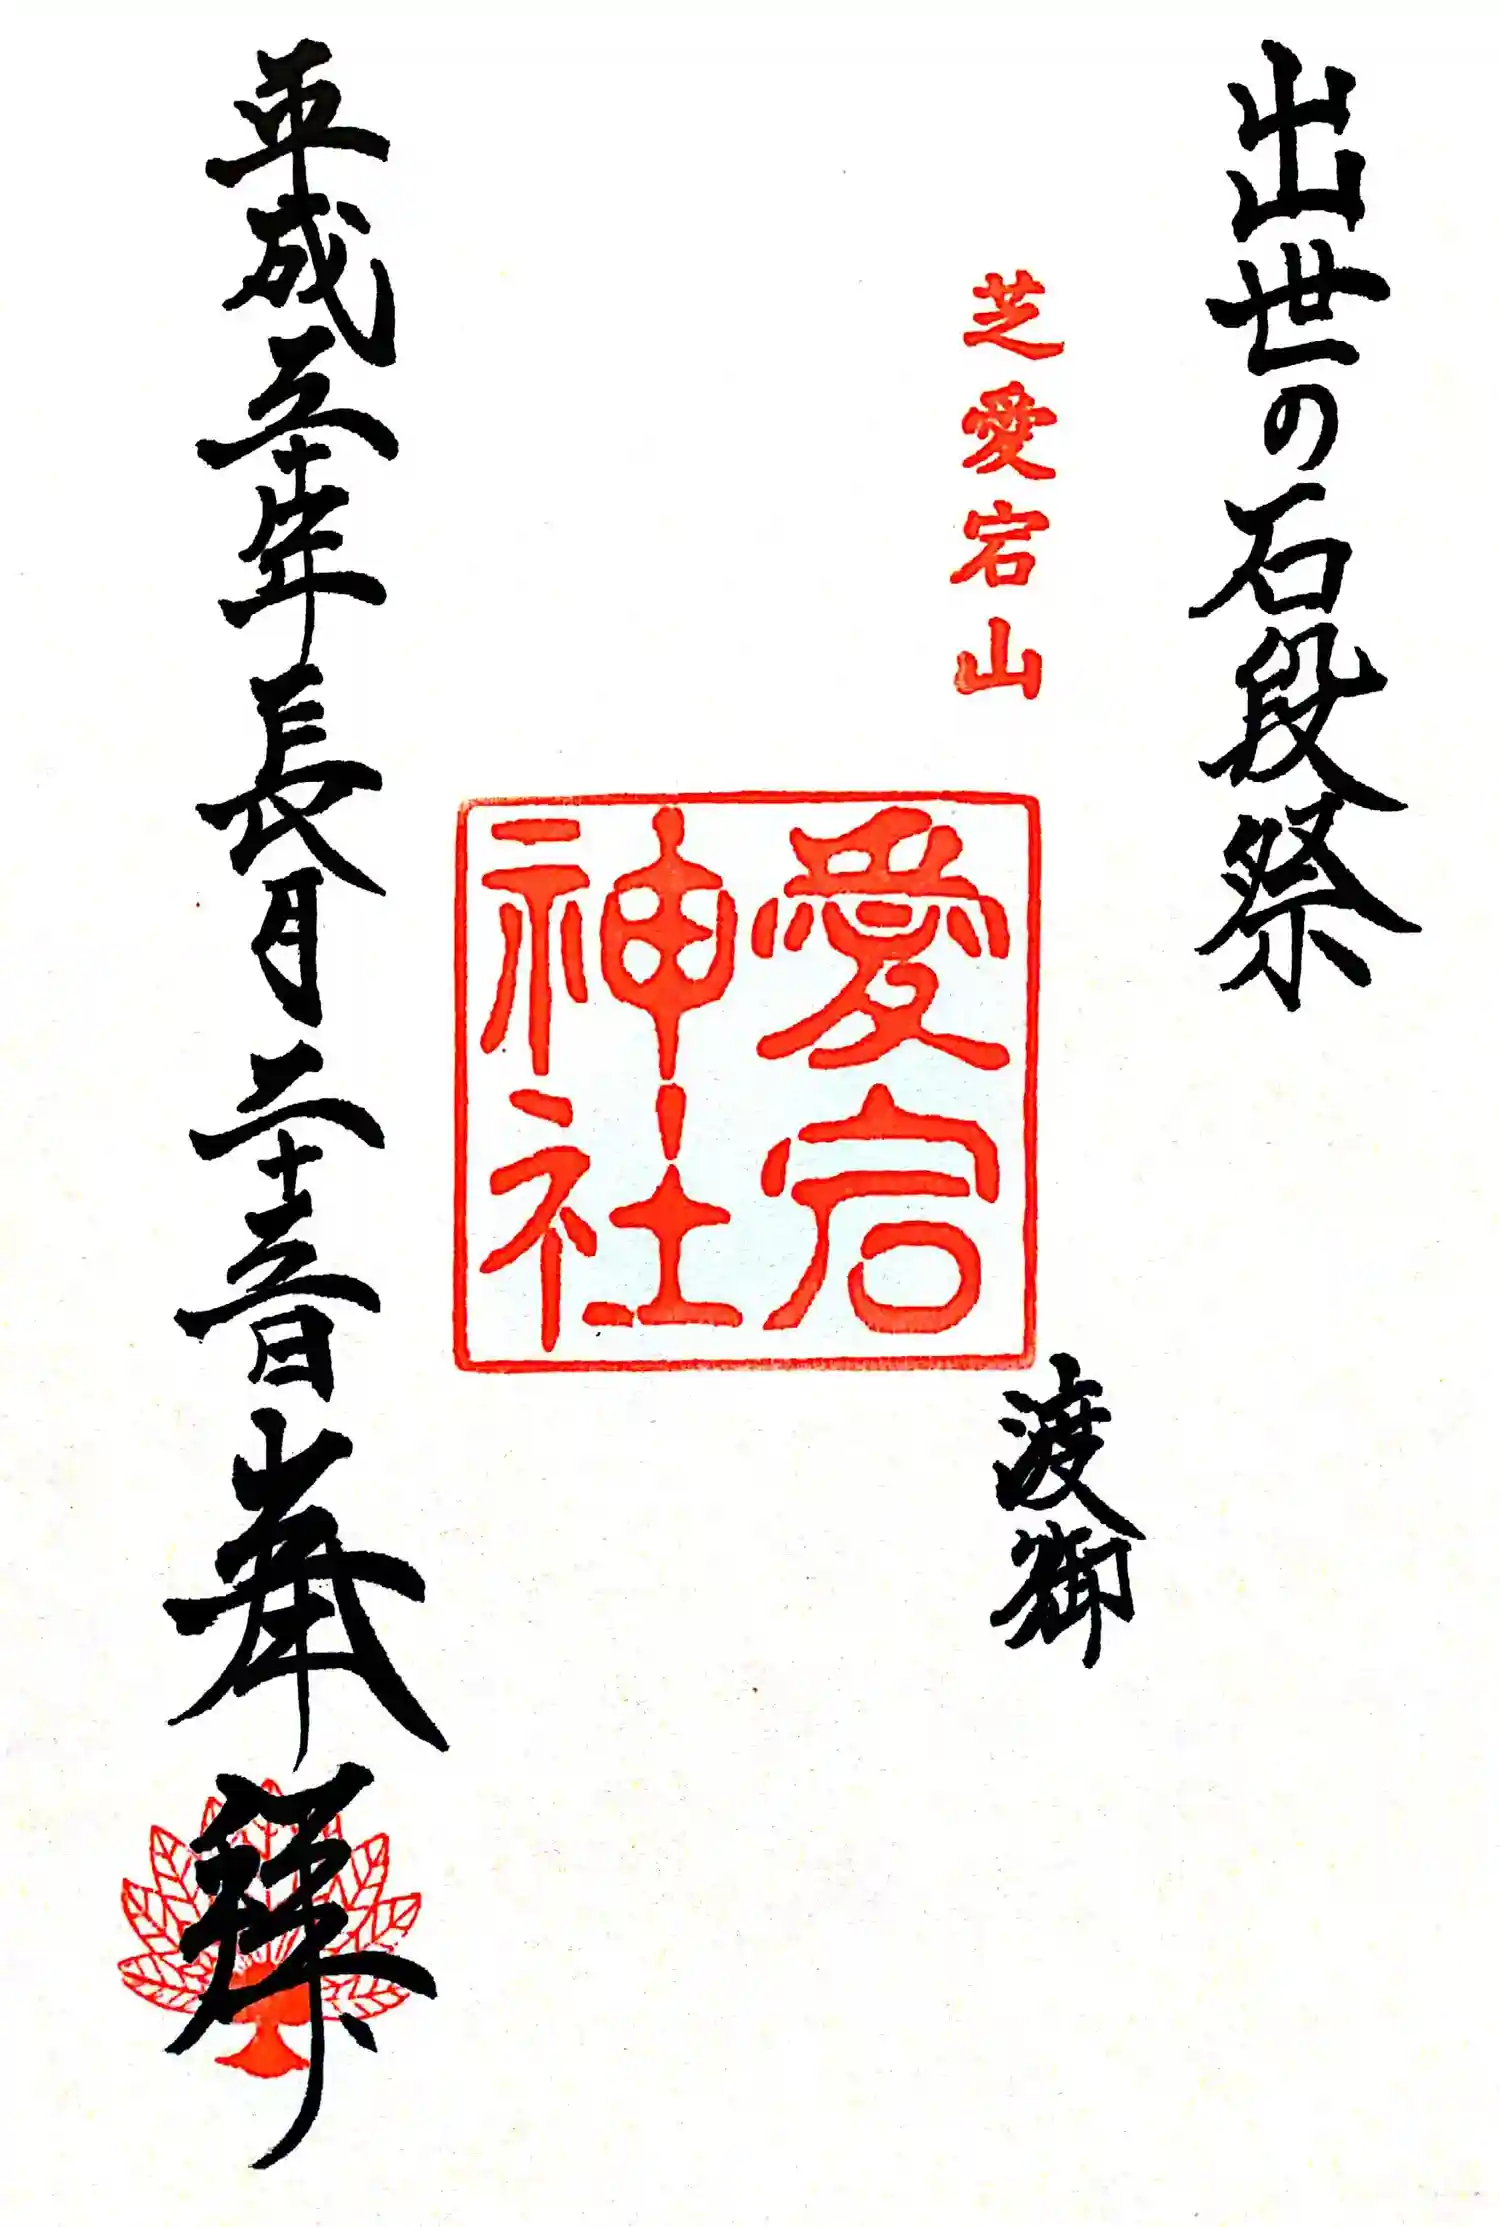 出世の石段祭
芝愛宕山
渡御
愛宕
神社
平成三十年長月二十三日奉拝